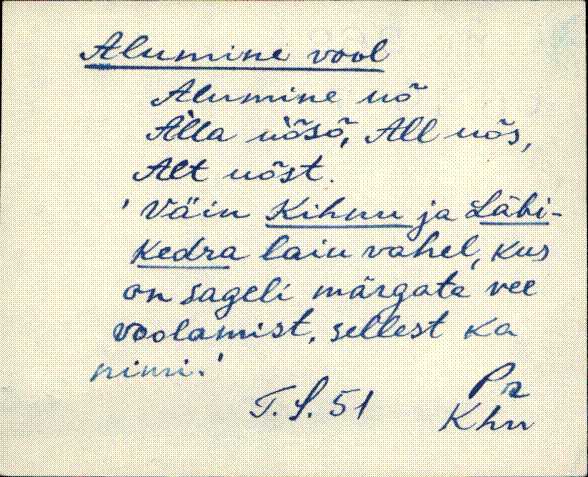 Alumine vool
Alumine uõ
Àlla ùõsõ, All uõs,
Alt uõst.
'Väin Kihnu ja Läbi-
kedra laiu vahel, kus
on sageli märgata vee
voolamist, sellest ka
nimi.'
T. S. 51 Pä
Khn